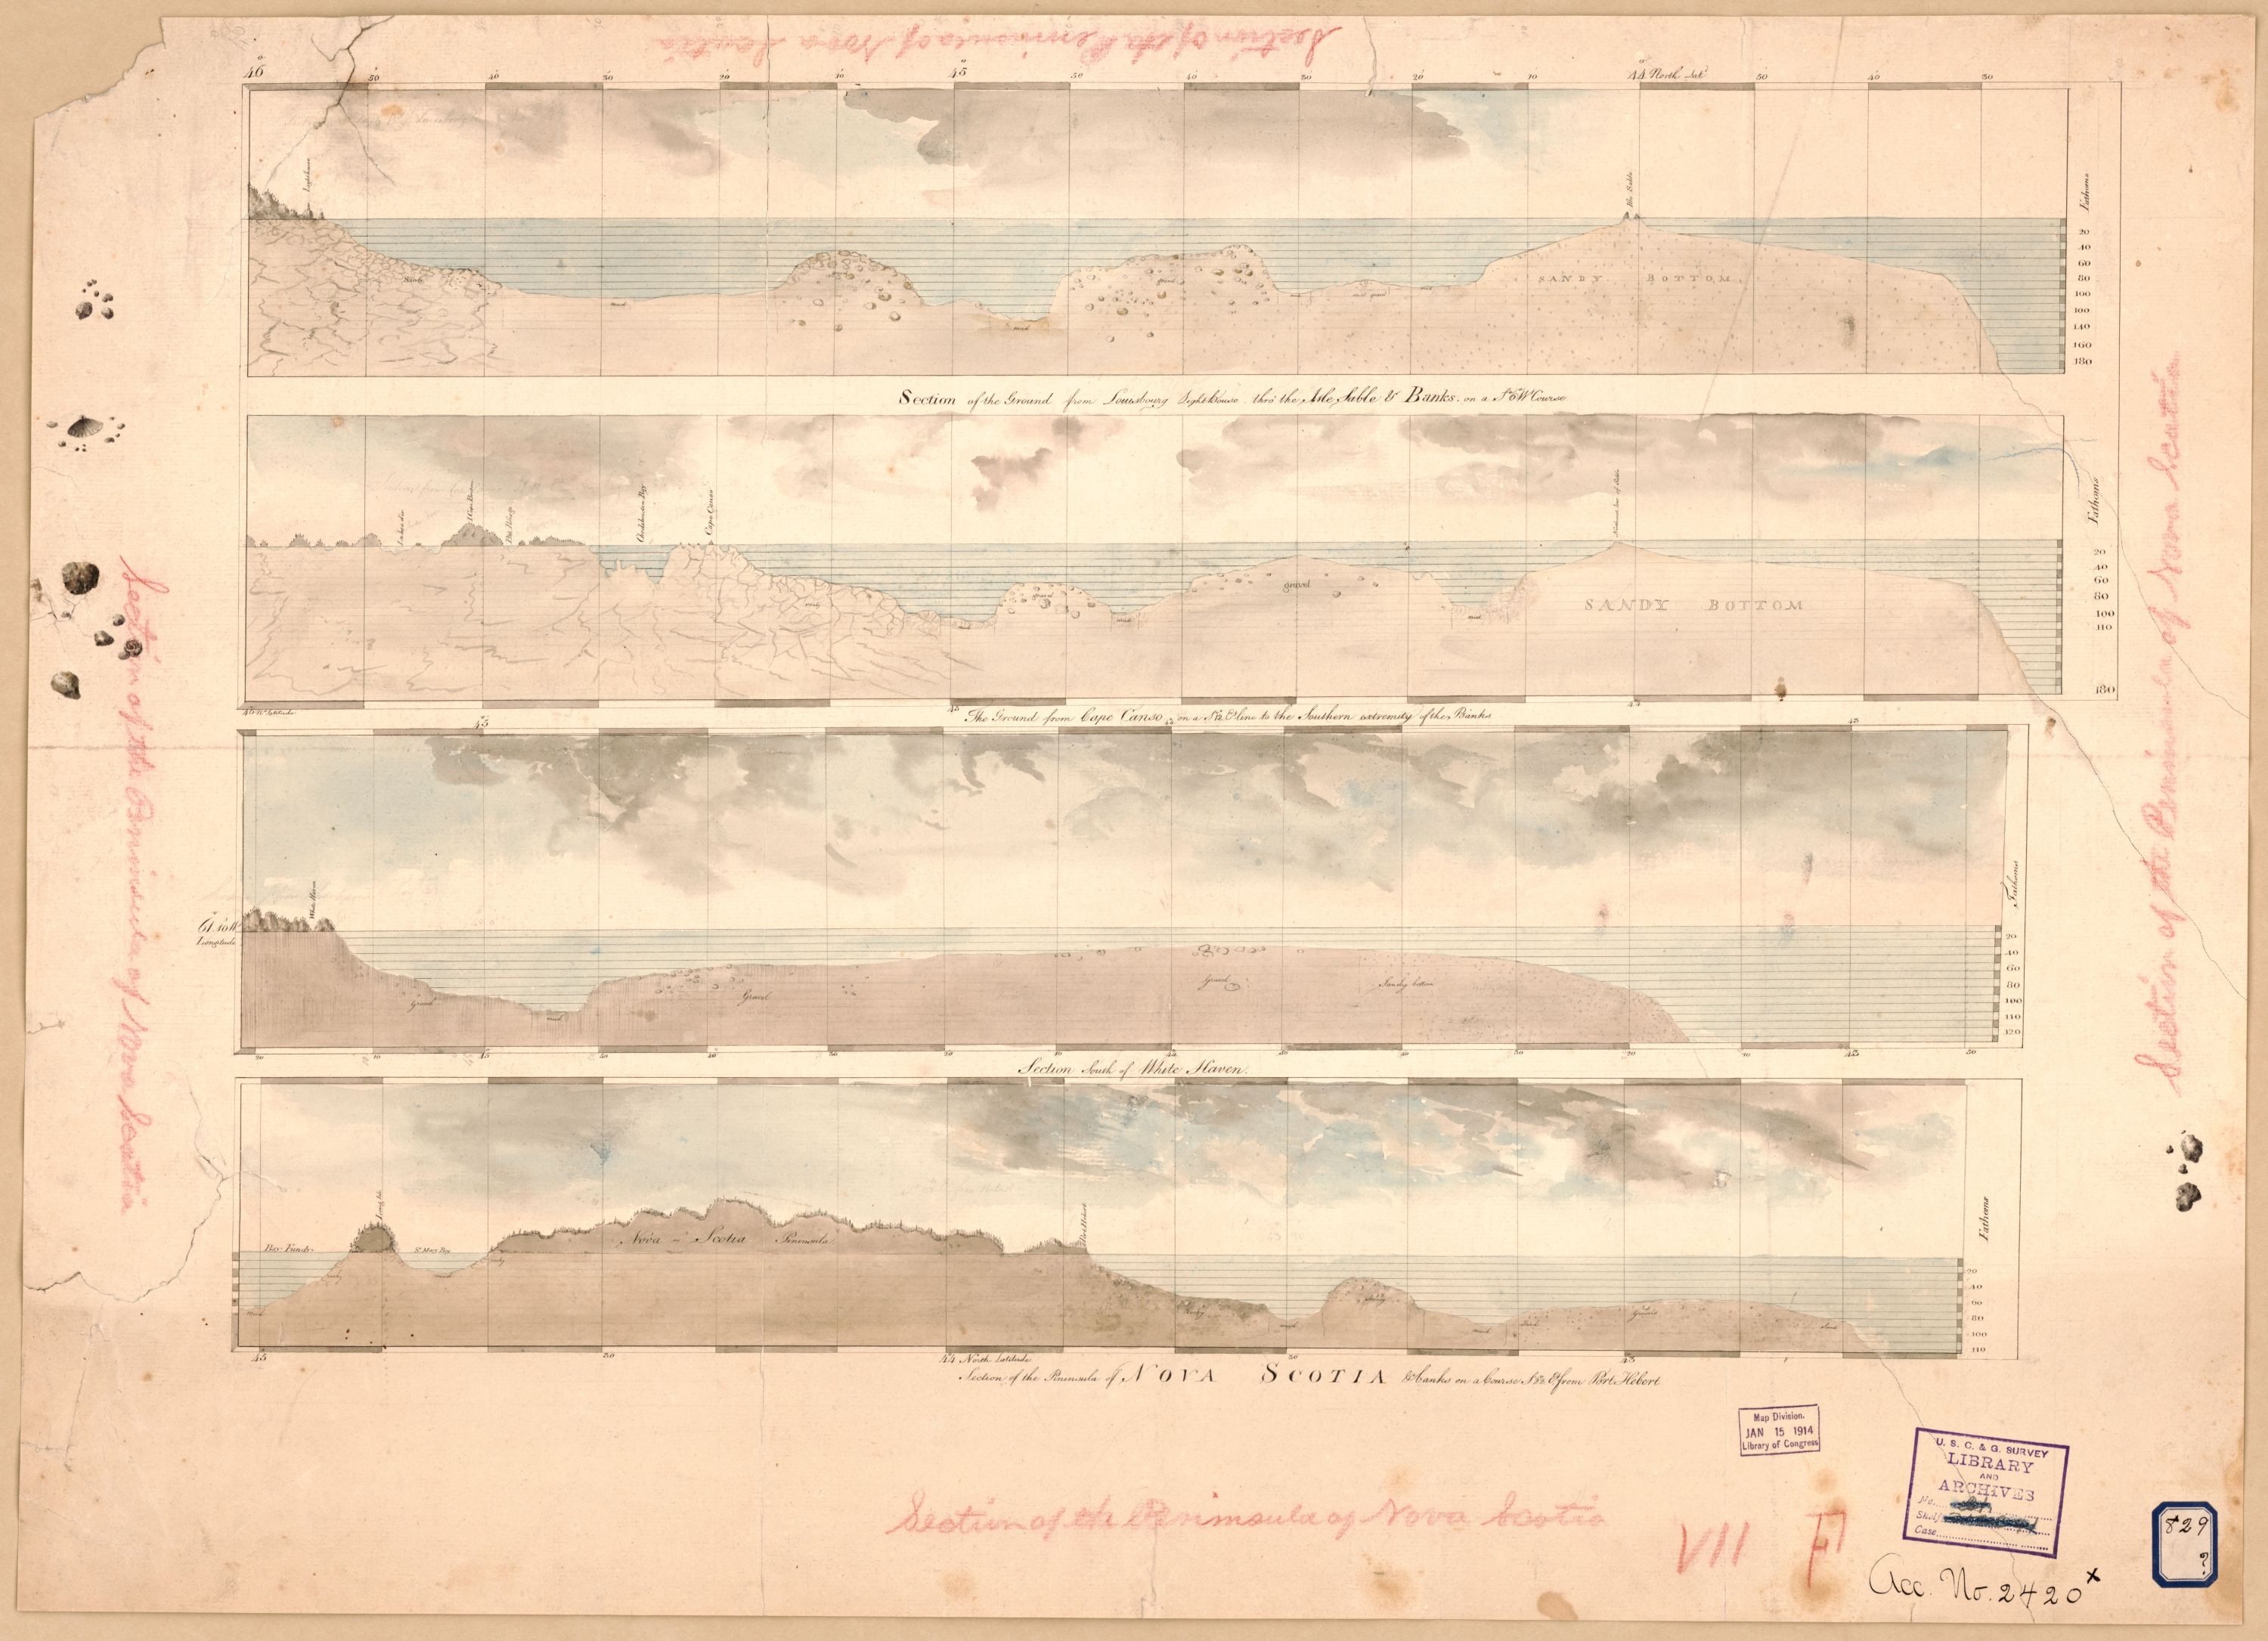 Section of the Peninsula of Nova Scotia
46 50 40 30 20 10 45 50 40 30 20 10 44 North Latd 50 40 30
Lighthouse
Isle Sable
Fathoms
20
40
60
80
100
100
140
160
180
mud
gravel
mud
mud gravel
mud
SANDY BOTTOM
Section of the Ground from Louisbourg Lighthouse thro' the Isle Sable & Banks, on a S°6°W Course
Cape Canso
Fathoms
20
40
60
80
100
110
180
gravel
gravel
mud
mud
mud
SANDY BOTTOM
46 No Latitude
45
44
The Ground from Cape Canso, on a line to the Southern extremity of the Banks
45
43
White Haven
61.10 W
Longitude
Fathoms
20
40
60
80
100
110
120
Gravel
mud
Gravel
Gravel
Sandy bottom
Section South of White Haven.
Bay Funda
St Marys Bay
Nova - Scotia Peninsula
Port Hebert
Fathoms
20
40
60
80
100
110
45 30 44 North Latitude 30 43
Section of the Peninsula of NOVA SCOTIA & banks on a Course from Port Hebert
Section of the Peninsula of Nova Scotia
Section of the Peninsula of Nova Scotia
Section of the Peninsula of Nova Scotia
VII F
Map Division.
JAN 15 1914
Library of Congress
U. S. C. & G. SURVEY
LIBRARY
AND
ARCHIVES
No.
Shelf
Case
829
?
Acc. No. 2420x